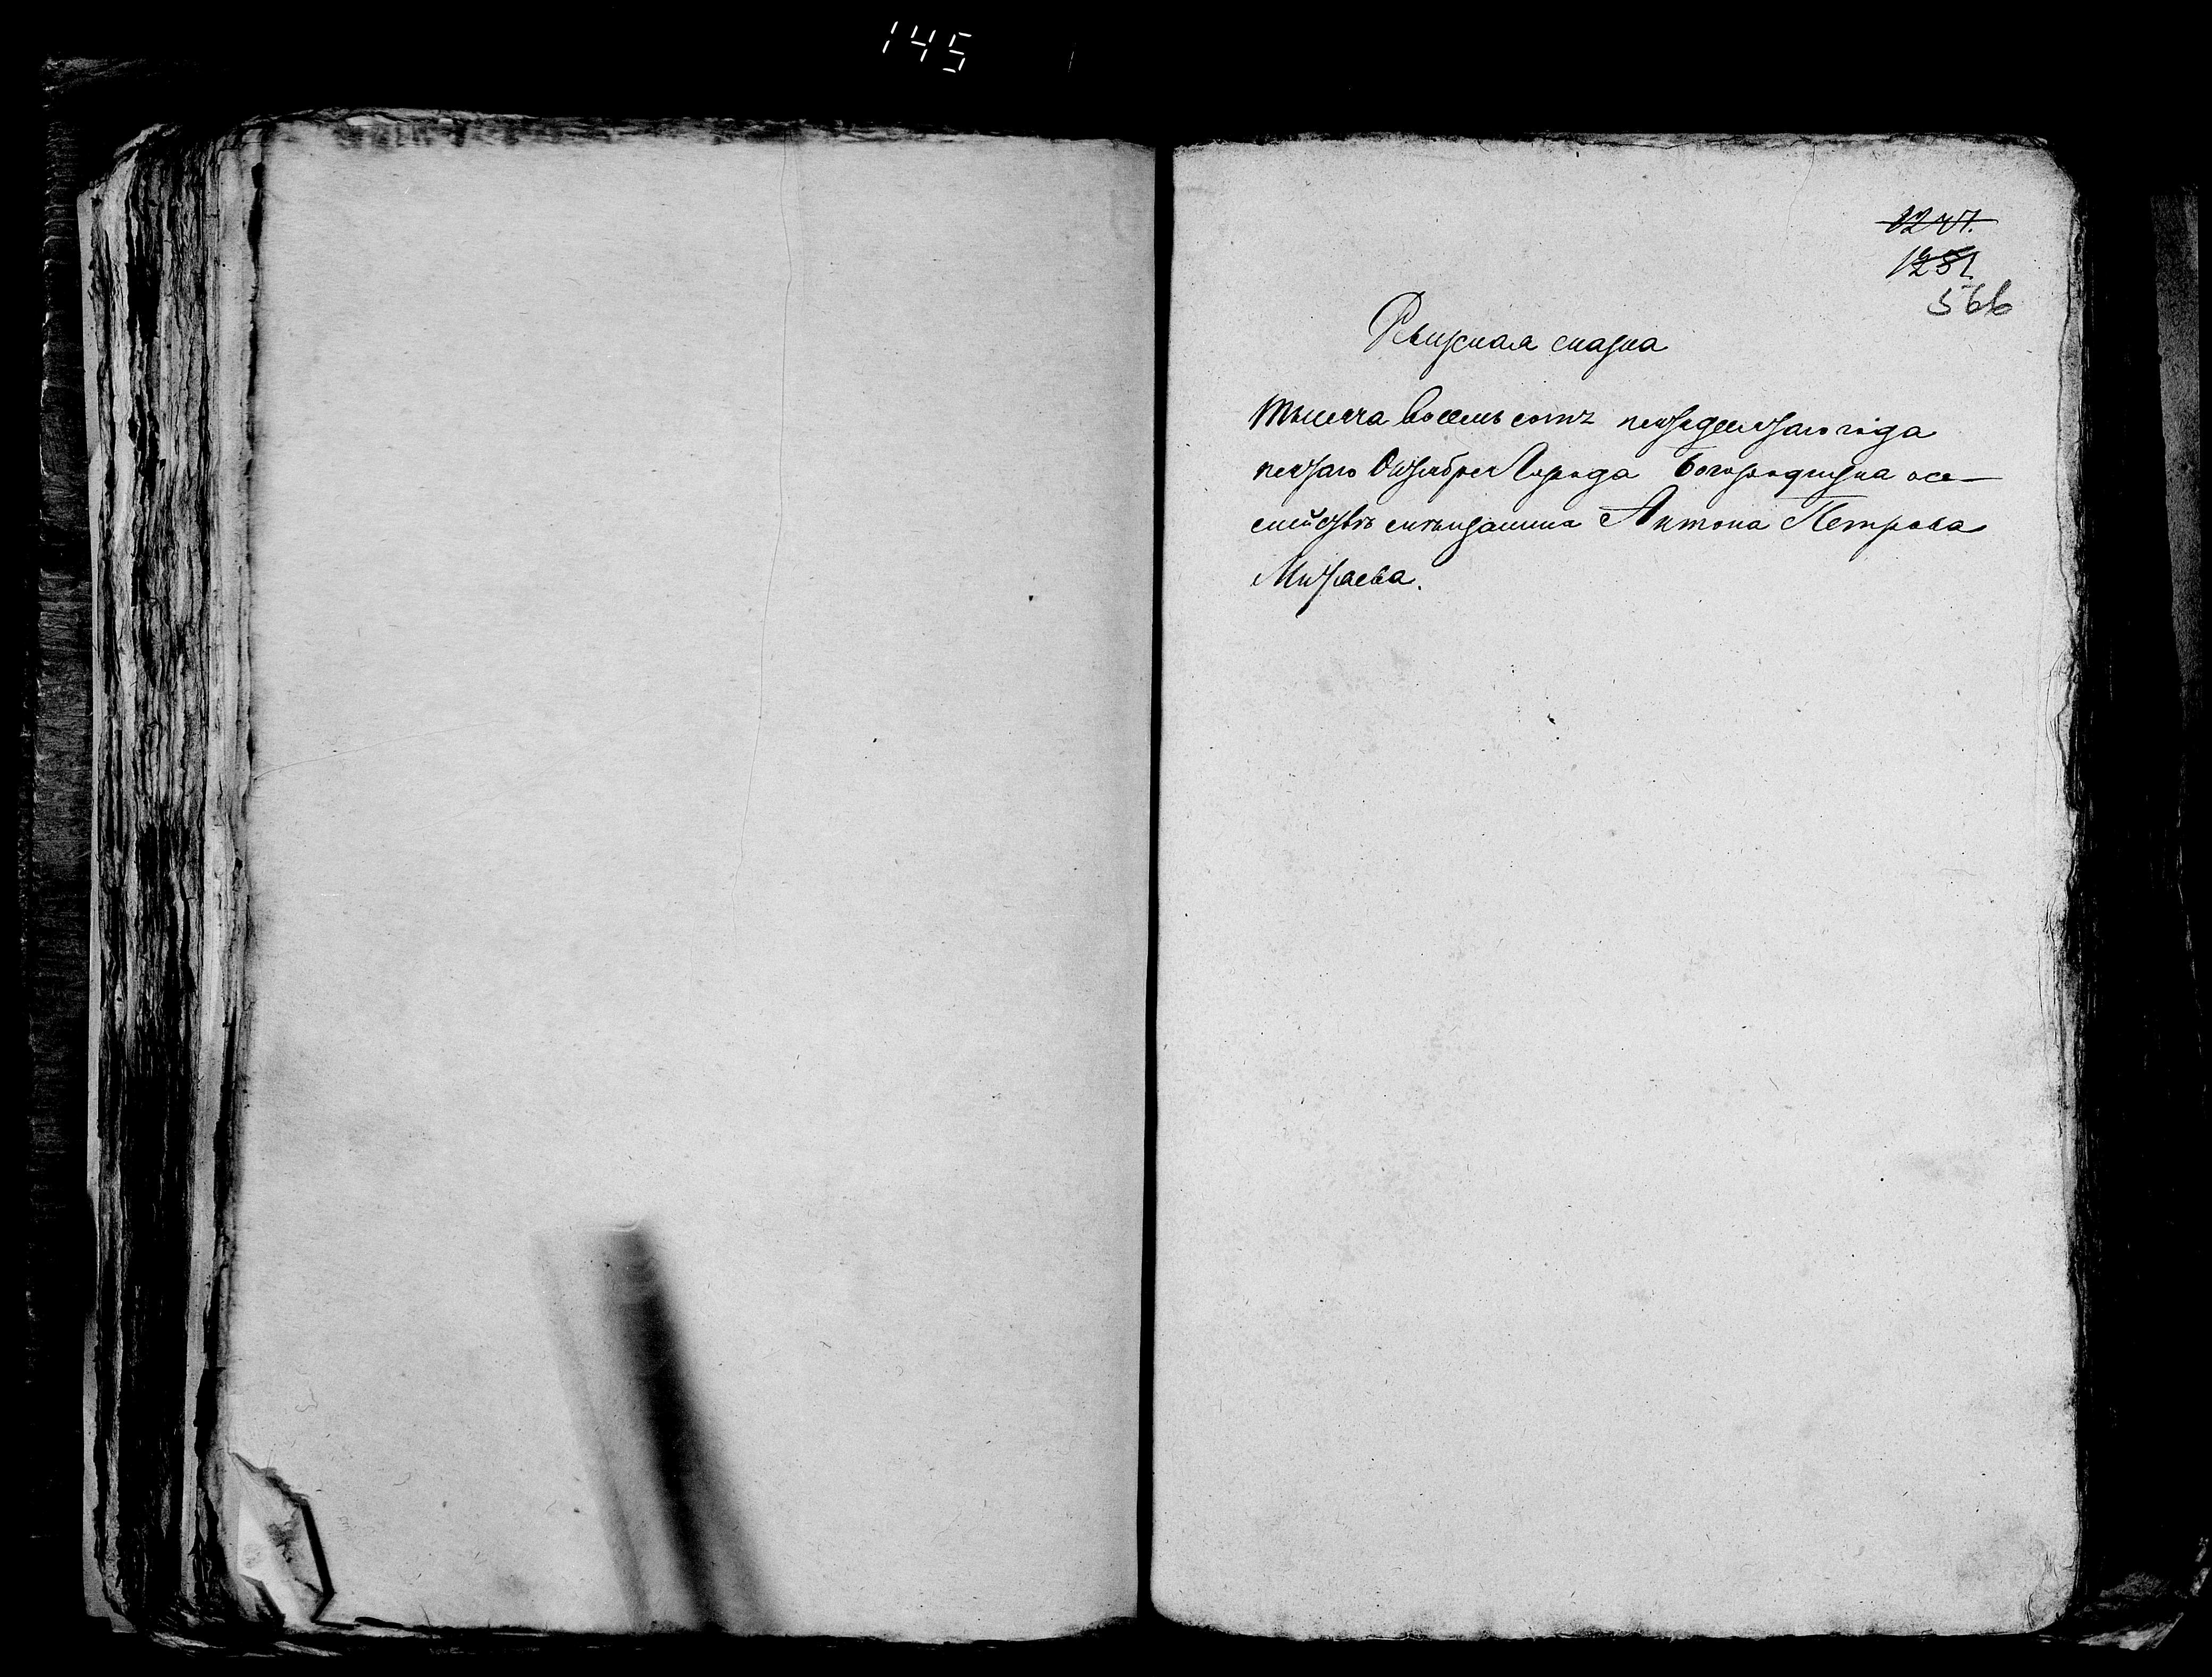 145
1247.
1251
566
Ревизская сказка
Тысяча восемь сотъ пятьдесятаго года
пятаго Октября Города Богородицка о се—
мействе мещанина Антона Петрова